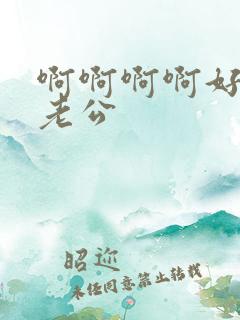 啊啊啊啊好
老公
昭迩
未经同意禁止转载